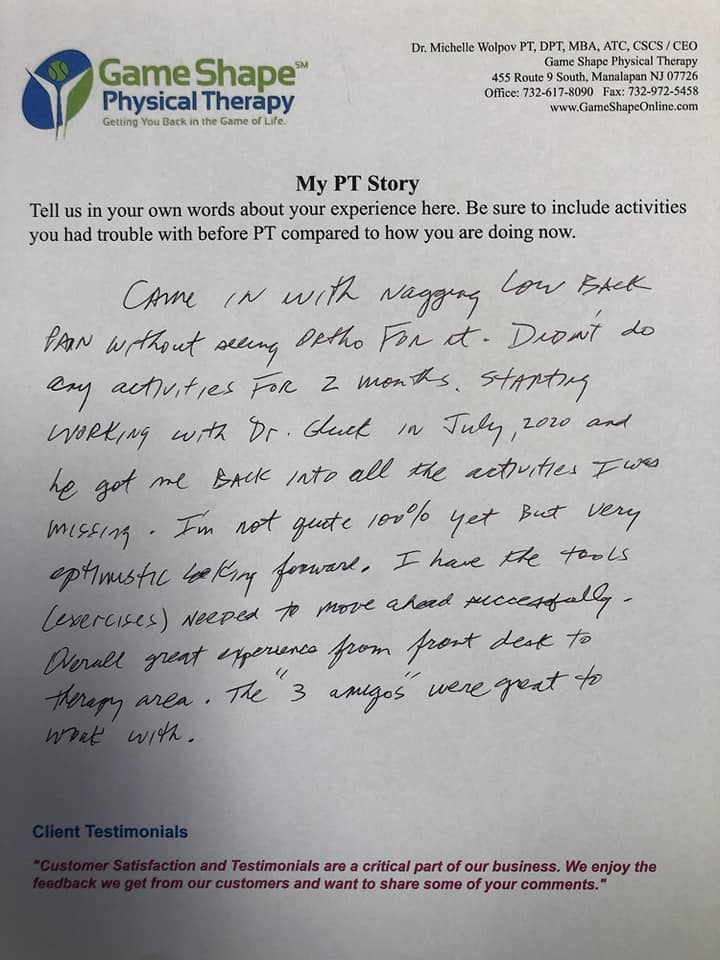 Game Shape SM
Physical Therapy
Getting You Back in the Game of Life.
Dr. Michelle Wolpov PT, DPT, MBA, ATC, CSCS / CEO
Game Shape Physical Therapy
455 Route 9 South, Manalapan NJ 07726
Office: 732-617-8090 Fax: 732-972-5458
www.GameShapeOnline.com
My PT Story
Tell us in your own words about your experience here. Be sure to include activities
you had trouble with before PT compared to how you are doing now.
CAME IN WITH NAGGING LOW BACK
PAIN WITHOUT seeing ORTHO FOR it. DIDN'T do
any activities FOR 2 months. STARTING
WORKING with Dr. Gluck in July, 2020 and
he got me BACK INTO all the activities I was
missing. I'm not quite 100% yet But very
optimistic looking forward. I have the tools
(exercises) NEEDED to move ahead successfully.
Overall great experience from front desk to
therapy area. The "3 amigos" were great to
work with.
Client Testimonials
"Customer Satisfaction and Testimonials are a critical part of our business. We enjoy the
feedback we get from our customers and want to share some of your comments."